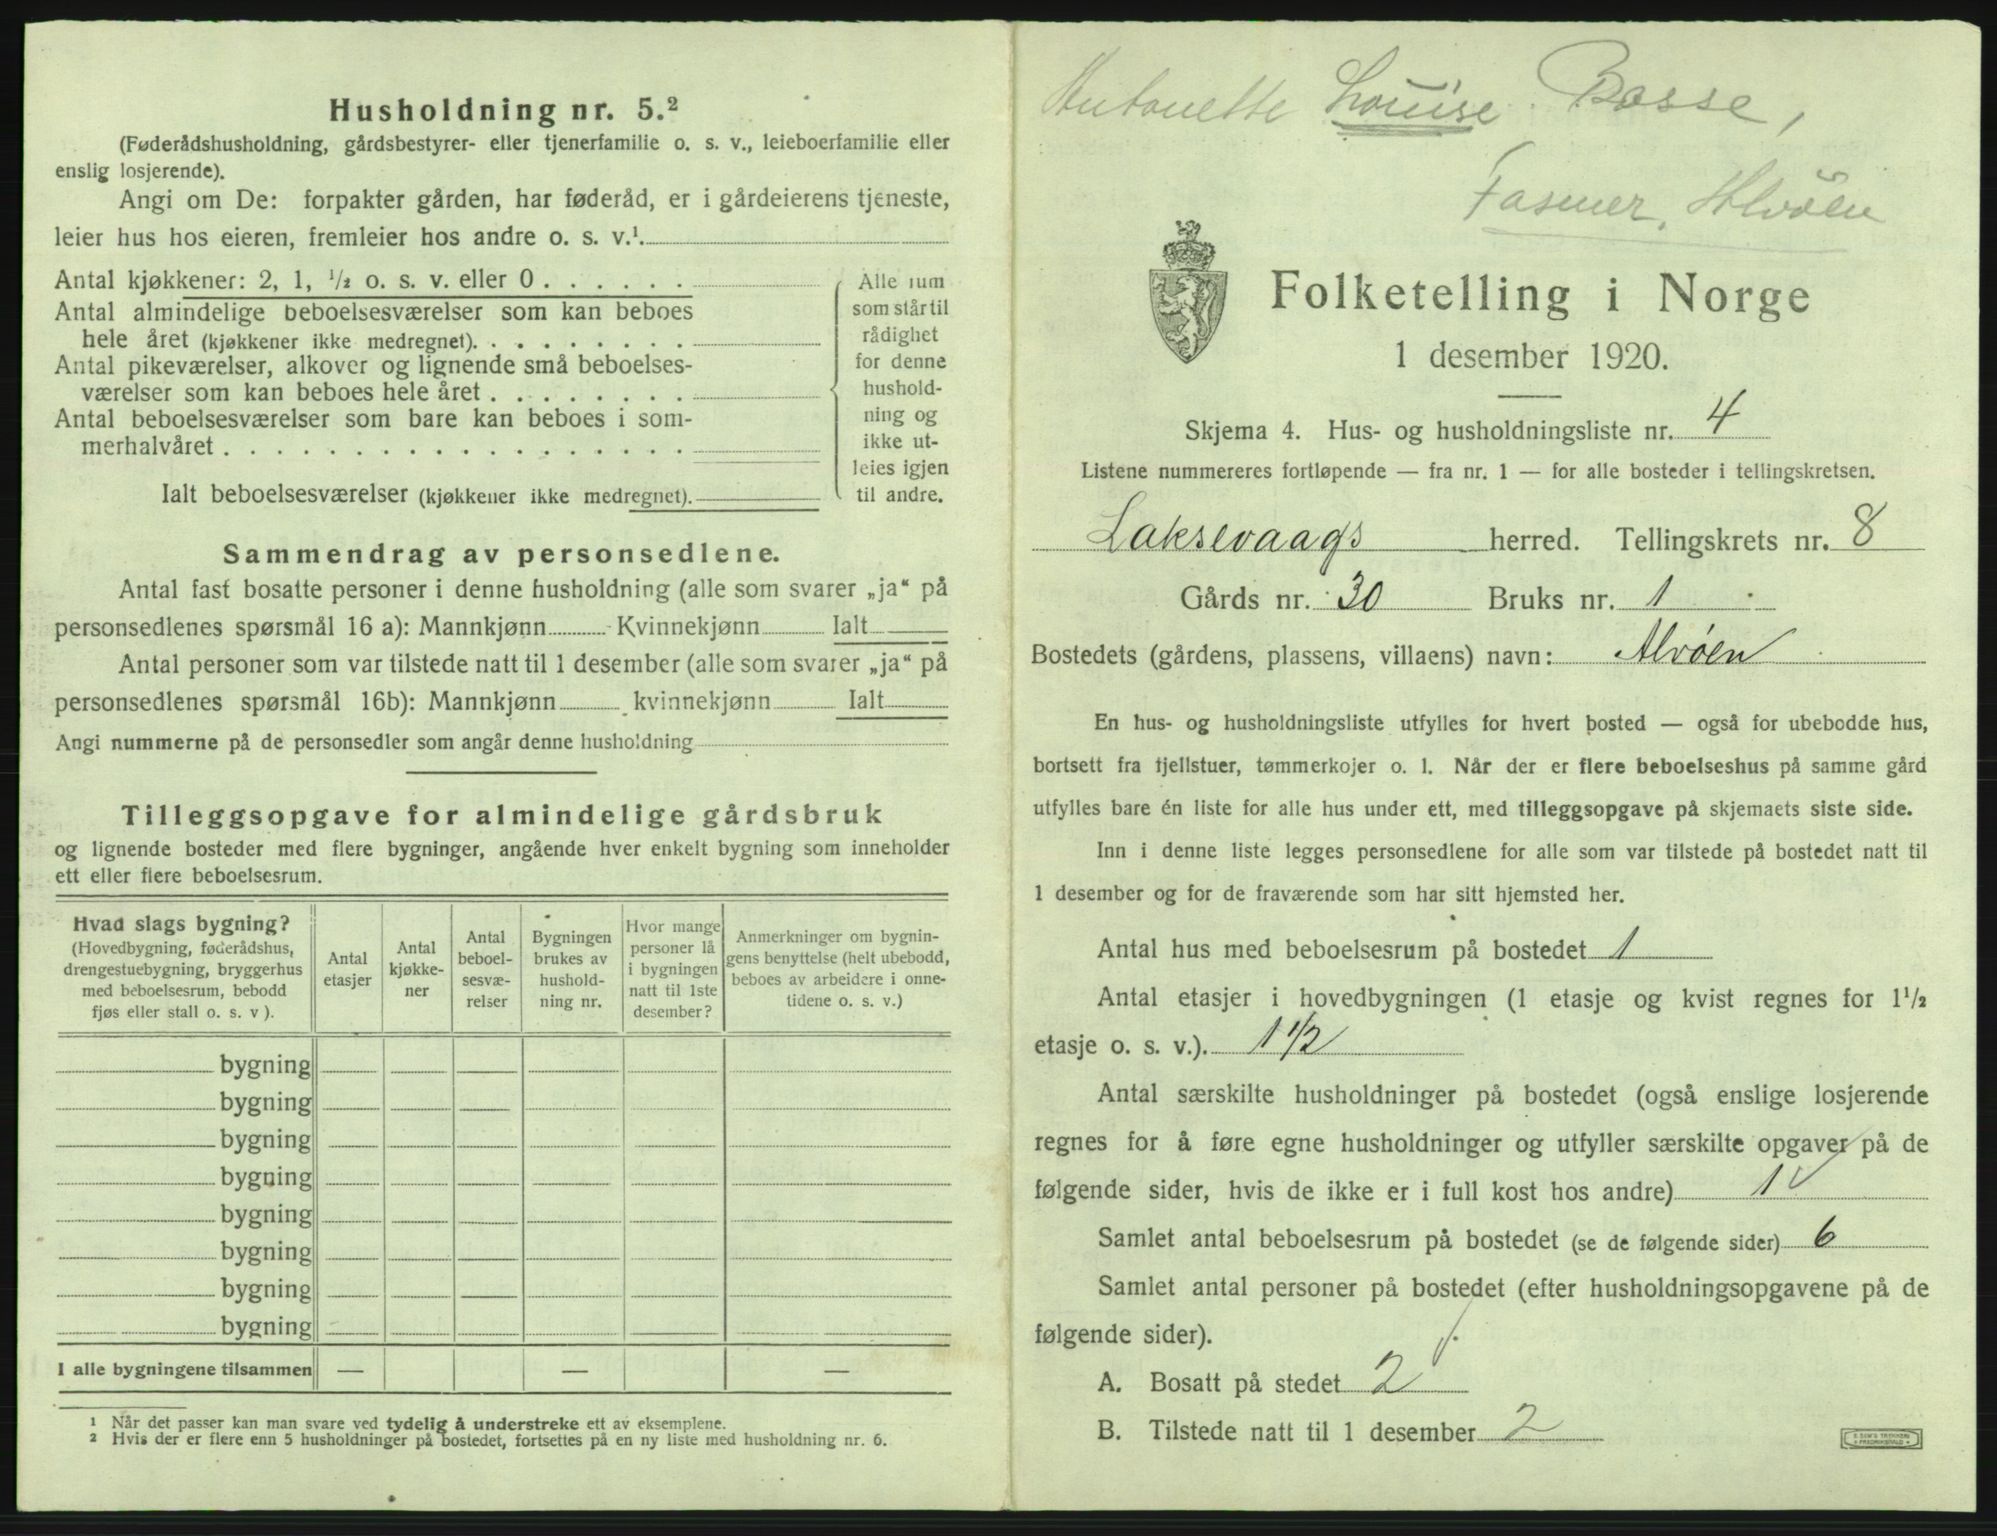 Husholdning nr. 5.²
(Føderådshusholdning, gårdsbestyrer- eller tjenerfamilie o. s. v., leieboerfamilie eller
enslig losjerende).
Angi om De: forpakter gården, har føderåd, er i gårdeierens tjeneste,
leier hus hos eieren, fremleier hos andre o. s. v.¹.
Antal kjøkkener: 2, 1, ½ o. s. v. eller 0 . . . . . .
Antal almindelige beboelsesværelser som kan beboes
hele året (kjøkkener ikke medregnet). . . . . . . . .
Antal pikeværelser, alkover og lignende små beboelses-
værelser som kan beboes hele året . . . . . . . .
Antal beboelsesværelser som bare kan beboes i som-
merhalvåret . . . . . . . . . . . . . . . . . .
Ialt beboelsesværelser (kjøkkener ikke medregnet).
Alle rum
som står til
rådighet
for denne
hushold-
ning og
ikke ut-
leies igjen
til andre.
Sammendrag av personsedlene.
Antal fast bosatte personer i denne husholdning (alle som svarer „ja“ på
personsedlenes spørsmål 16 a): Mannkjønn Kvinnekjønn Ialt
Antal personer som var tilstede natt til 1 desember (alle som svarer „ja“ på
personsedlenes spørsmål 16b): Mannkjønn kvinnekjønn Ialt
Angi nummerne på de personsedler som angår denne husholdning
Tilleggsopgave for almindelige gårdsbruk
og lignende bosteder med flere bygninger, angående hver enkelt bygning som inneholder
ett eller flere beboelsesrum.
Hvad slags bygning?
(Hovedbygning, føderådshus,
drengestuebygning, bryggerhus
med beboelsesrum, bebodd
fjøs eller stall o. s. v ).
Antal
etasjer
Antal
kjøkke-
ner
Antal
beboel-
sesvæ-
relser
Bygningen
brukes av
hushold-
ning nr.
Hvor mange
personer lå
i bygningen
natt til 1ste
desember?
Anmerkninger om bygnin-
gens benyttelse (helt ubebodd,
beboes av arbeidere i onne-
tidene o. s. v.)
bygning
bygning
bygning
bygning
bygning
bygning
bygning
bygning
I alle bygningene tilsammen — — —
¹ Når det passer kan man svare ved tydelig å understreke ett av eksemplene.
² Hvis der er flere enn 5 husholdninger på bostedet, fortsettes på en ny liste med husholdning nr. 6.
Antonette Louise Basse,
Fasmer, Alvöen
Folketelling i Norge
1 desember 1920.
Skjema 4. Hus- og husholdningsliste nr. 4
Listene nummereres fortløpende — fra nr. 1 — for alle bosteder i tellingskretsen.
Laksevaags herred. Tellingskrets nr. 8
Gårds nr. 30 Bruks nr. 1
Bostedets (gårdens, plassens, villaens) navn: Alvøen
En hus- og husholdningsliste utfylles for hvert bosted — også for ubebodde hus,
bortsett fra fjellstuer, tømmerkojer o. l. Når der er flere beboelseshus på samme gård
utfylles bare én liste for alle hus under ett, med tilleggsopgave på skjemaets siste side.
Inn i denne liste legges personsedlene for alle som var tilstede på bostedet natt til
1 desember og for de fraværende som har sitt hjemsted her.
Antal hus med beboelsesrum på bostedet 1
Antal etasjer i hovedbygningen (1 etasje og kvist regnes for 1½
etasje o. s. v.). 1 1/2
Antal særskilte husholdninger på bostedet (også enslige losjerende
regnes for å føre egne husholdninger og utfyller særskilte opgaver på de
følgende sider, hvis de ikke er i full kost hos andre) 1
Samlet antal beboelsesrum på bostedet (se de følgende sider) 6
Samlet antal personer på bostedet (efter husholdningsopgavene på de
følgende sider).
A. Bosatt på stedet 2
B. Tilstede natt til 1 desember 2